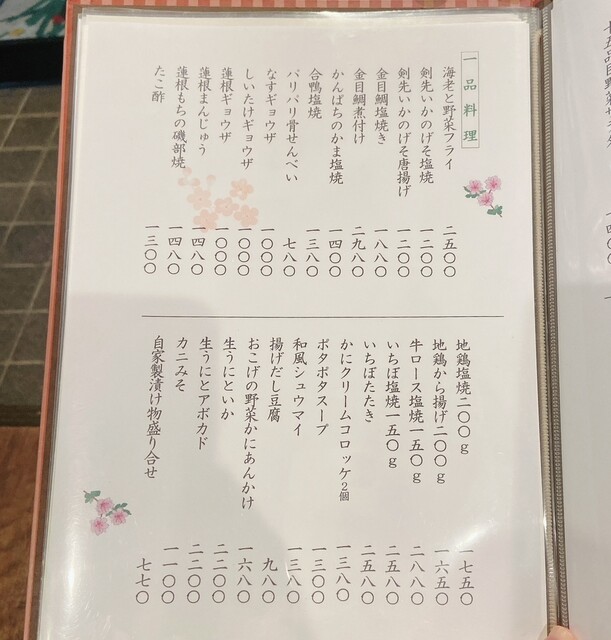 一品料理
海老と野菜フライ 二五〇〇
剣先いかのげそ塩焼 一二〇〇
剣先いかのげそ唐揚げ 一二〇〇
金目鯛塩焼き 一八八〇
金目鯛煮付け 二九八〇
かんぱちのかま塩焼 一四〇〇
合鴨塩焼 一三八〇
パリパリ骨せんべい 七八〇
なすギョウザ 一〇〇〇
しいたけギョウザ 一〇〇〇
蓮根ギョウザ 一〇〇〇
蓮根まんじゅう 一四八〇
蓮根もちの磯部焼 一四八〇
たこ酢 一三〇〇
地鶏塩焼二〇〇g 一七五〇
地鶏から揚げ二〇〇g 一六五〇
牛ロース塩焼一五〇g 二八八〇
いちぼ塩焼一五〇g 二五八〇
いちぼたたき 二五八〇
かにクリームコロッケ2個 一三八〇
ポタポタスープ 一三〇〇
和風シュウマイ 一三八〇
揚げだし豆腐 九八〇
おこげの野菜かにあんかけ 一六八〇
生うにといか 二二〇〇
生うにとアボカド 二二〇〇
カニみそ 一一〇〇
自家製漬け物盛り合せ 七七〇